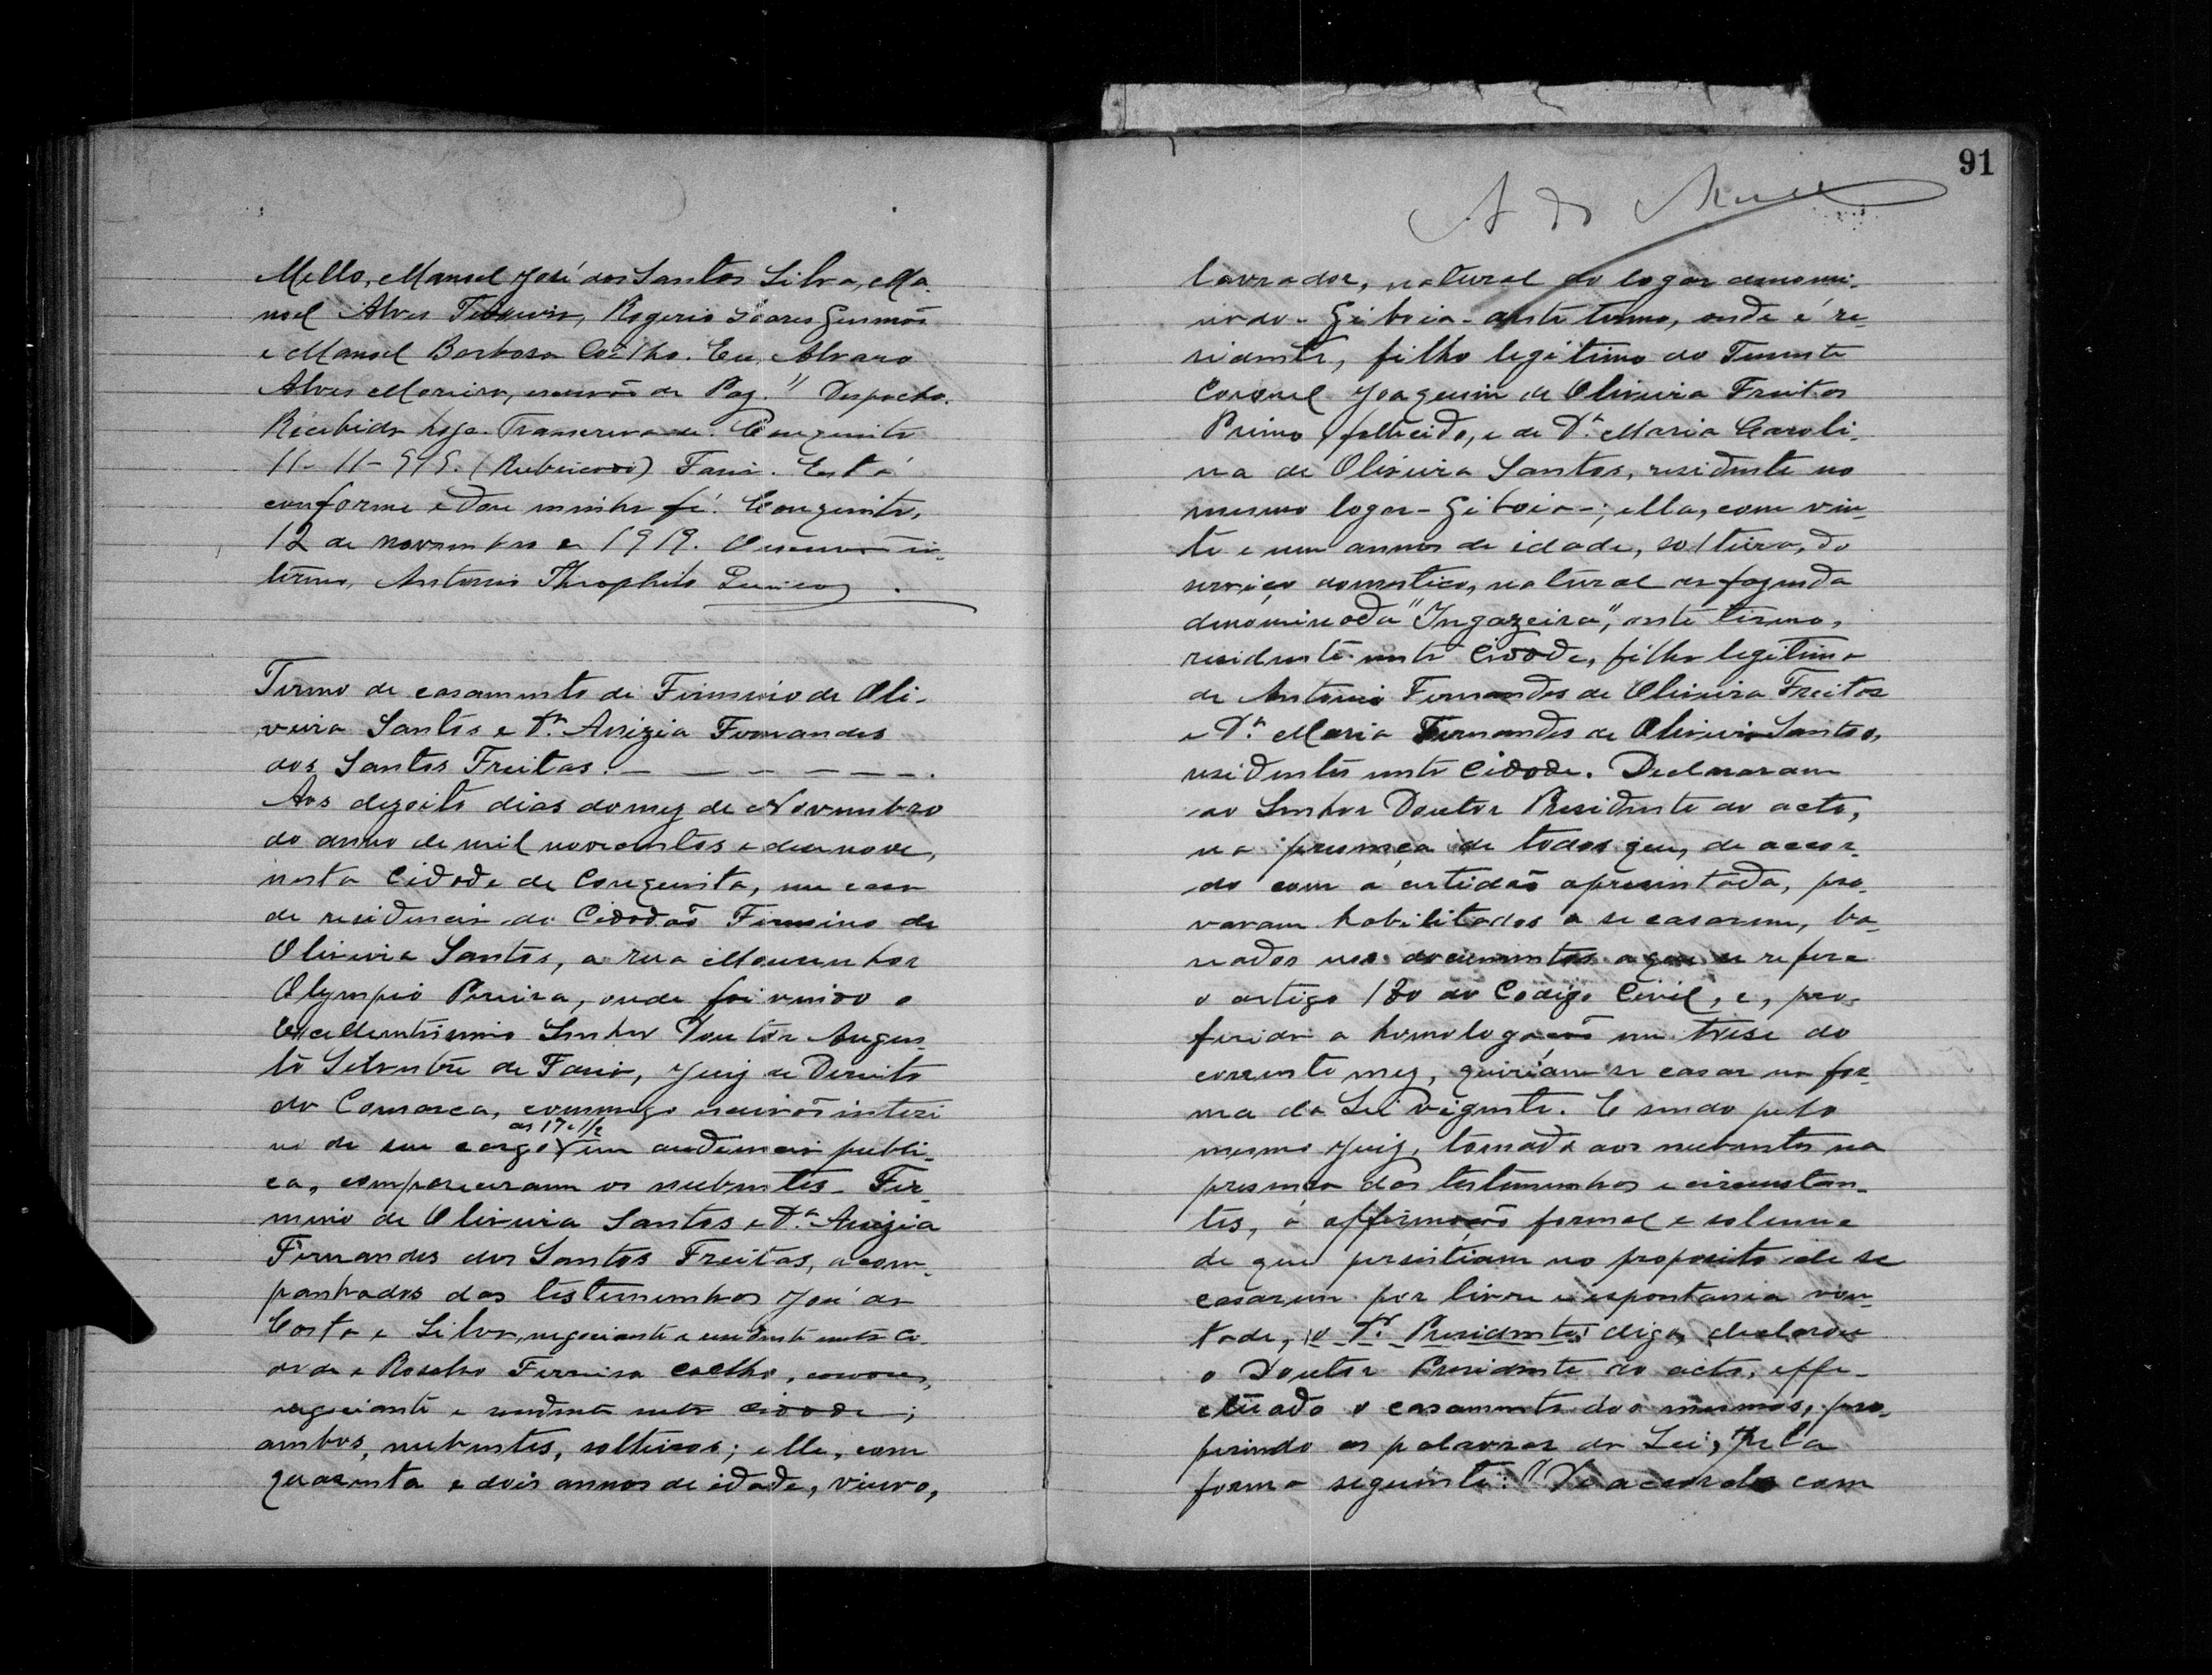 Mello, Manoel José dos Santos Silva, Ma-
noel Alves Teixeira, Rogerio Soares Gusmão
e Manoel Barbosa Coêlho. Eu, Alvaro
Alves Moreira, escrivão de Paz." Despacho.
Recebida hoje. Transcreva-se. Conquista
11-11-919. (Rubricado) Faria. Está
conforme e dou minha fé. Conquista,
12 de Novembro de 1919. O escrivão in-
terino, Antonio Theophilo
Termo de casamento de Firmino de Oli-
veira Santos e Dª. Anizia Fernandes
dos Santos Freitas. — — — — — — .
Aos dezoito dias do mez de Novembro
do anno de mil novecentos e dezenove,
nesta Cidade de Conquista, em casa
de residencia do Cidadão Firmino de
Oliveira Santos, a rua Monsenhor
Olympio Pereira, onde foi vindo o
Excellentissimo Senhor Doutor Augus-
to Silvestre de Faria, Juiz de Direito
da Comarca, commigo escrivão interi
as 17 e 1/2
no de seu cargo em audiencia publi-
ca, compareceram os nubentes - Fir-
mino de Oliveira Santos e Dª. Anizia
Fernandes dos Santos Freitas, acom-
panhados das testemunhas José da
Costa e Silva, negociante e residente nesta Ci-
dade e Ferreira Coelho,
negociante e residente nesta cidade;
ambos, nubentes, solteiros; elle, com
quarenta e dois annos de idade, viuvo,
91
lavrador, natural do logar denomi-
nado - Giboia - deste termo, onde é re-
sidente, filho legitimo do Tenente
Coronel Joaquim de Oliveira Freitas
Primo, fallecido, e de Dª. Maria Caroli-
na de Oliveira Santos, residente no
mesmo logar - Giboia -; ella, com vin-
te e um annos de idade, solteira, do
serviço domestico, natural da fazenda
denominada "Ingazeira", deste termo,
residente nesta Cidade, filha legitima
de Antonio Fernandes de Oliveira Freitas
e Dª. Maria Fernandes de Oliveira Santos,
residentes nesta Cidade. Declararam
ao Senhor Doutor Presidente do acto,
na presença de todos que, de accor-
do com a certidão apresentada, pro-
varam habilitados a se casarem, ba-
seados nos documentos a que se refere
o artigo 180 do Codigo Civil, e, pro-
ferida a homologação em trese do
corrente mez, queriam se casar na for-
ma da Lei vigente. E sendo pelo
mesmo Juiz, tomada aos nubentes na
presença das testemunhas e circumstan-
tes, a affirmação formal e solemne
de que persistiam no proposito de se
casarem por livre e espontanea von-
tade, o Dr. Presidente, digo, declarou
o Doutor Presidente do acto, effe-
ctuado o casamento dos mesmos, pro-
ferindo as palavras da Lei, pela
forma seguinte: "De accordo com